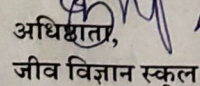 अधिष्ठाता,
जीव विज्ञान स्कूल